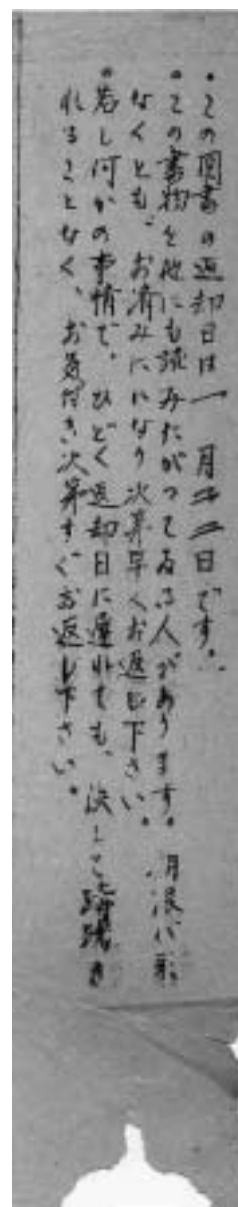 ・この図書の返却日は一月廿二日です。
・この書物を他にも読みたがつてゐる人があります。期限が来
なくとも、お済みになり次第早くお返し下さい。
・若し何かの事情で、ひどく返却日に遅れても、決して躊躇さ
れることなく、お気付き次第すぐお返し下さい。